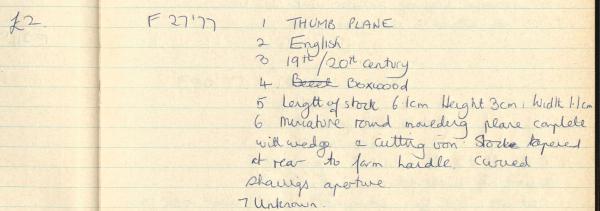 £2. F 27'77 1 THUMB PLANE
2 English
3 19th/20th century
4 Beech Boxwood
5 Length of stock 6.1cm Height 3cm; Width 1.1cm
6 Miniature round moulding plane complete
with wedge & cutting iron. Stock tapered
at rear to form handle. curved
shavings aperture
7 Unknown.